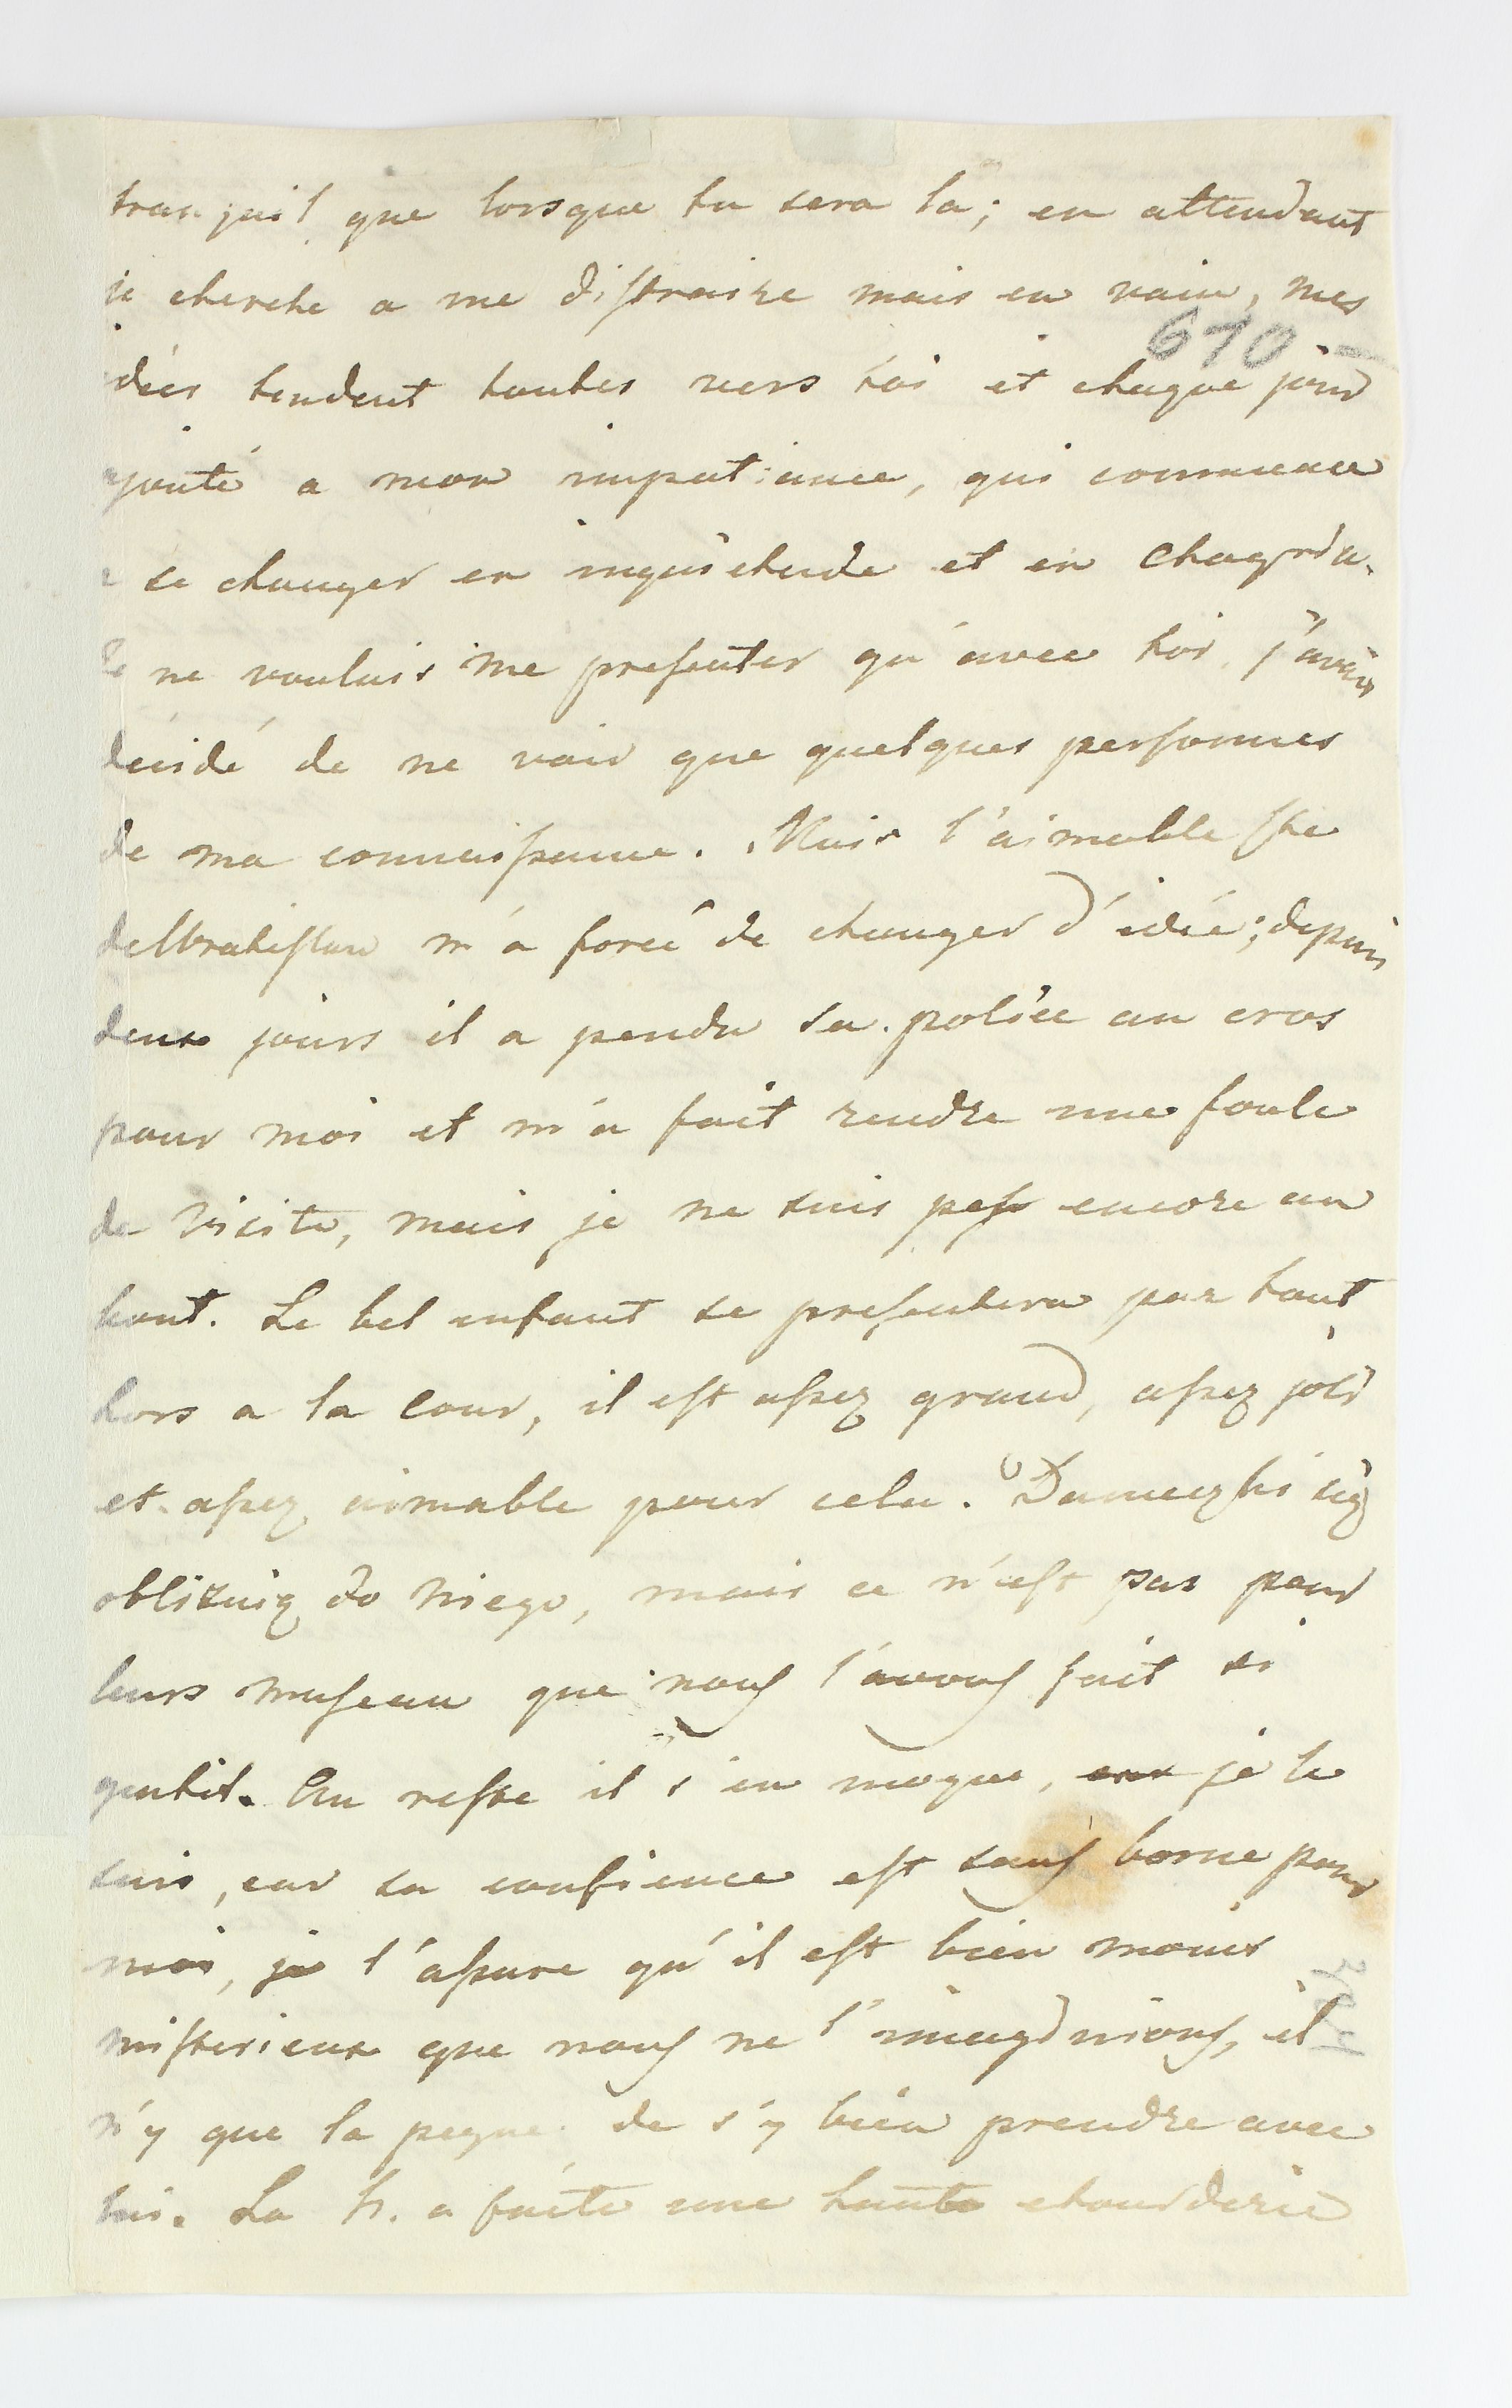 tranquil que lorsque tu sera la; en attendant
je cherche a me distraire mais en vain, mes
610 -
idées tendent toutes vers toi et chaque jour
ajoute a mon impatiance, qui commence
a se changer en inquietude et en chagrin.
Je ne voulais me presenter qu'avec toi, j'avais
décidé de ne voir que quelques personnes
de ma connaissance. Mais l'aimable
m'a forcé de changer d'idée; depuis
deux jours il a pendu sa police au cros
pour moi et m'a fait rendre une foule
de visite, mais je ne suis pas encore au
bout. Le bel enfant se presentera par tout
hors a la Cour, il est assez grand, assez joli
et assez aimable pour cela. się
do niego, mais ce n'est pas pour
leurs museau que nous l'avons fait si
gentil. Au reste il s'en moque, je le
sais, car sa confience est sans borne pour
moi, je t'assure qu'il est bien moins
misterieux que nous ne l'imaginions, il
n'y que la peyne de s'y bien prendre avec
lui. La h. a faite une haute etourderie